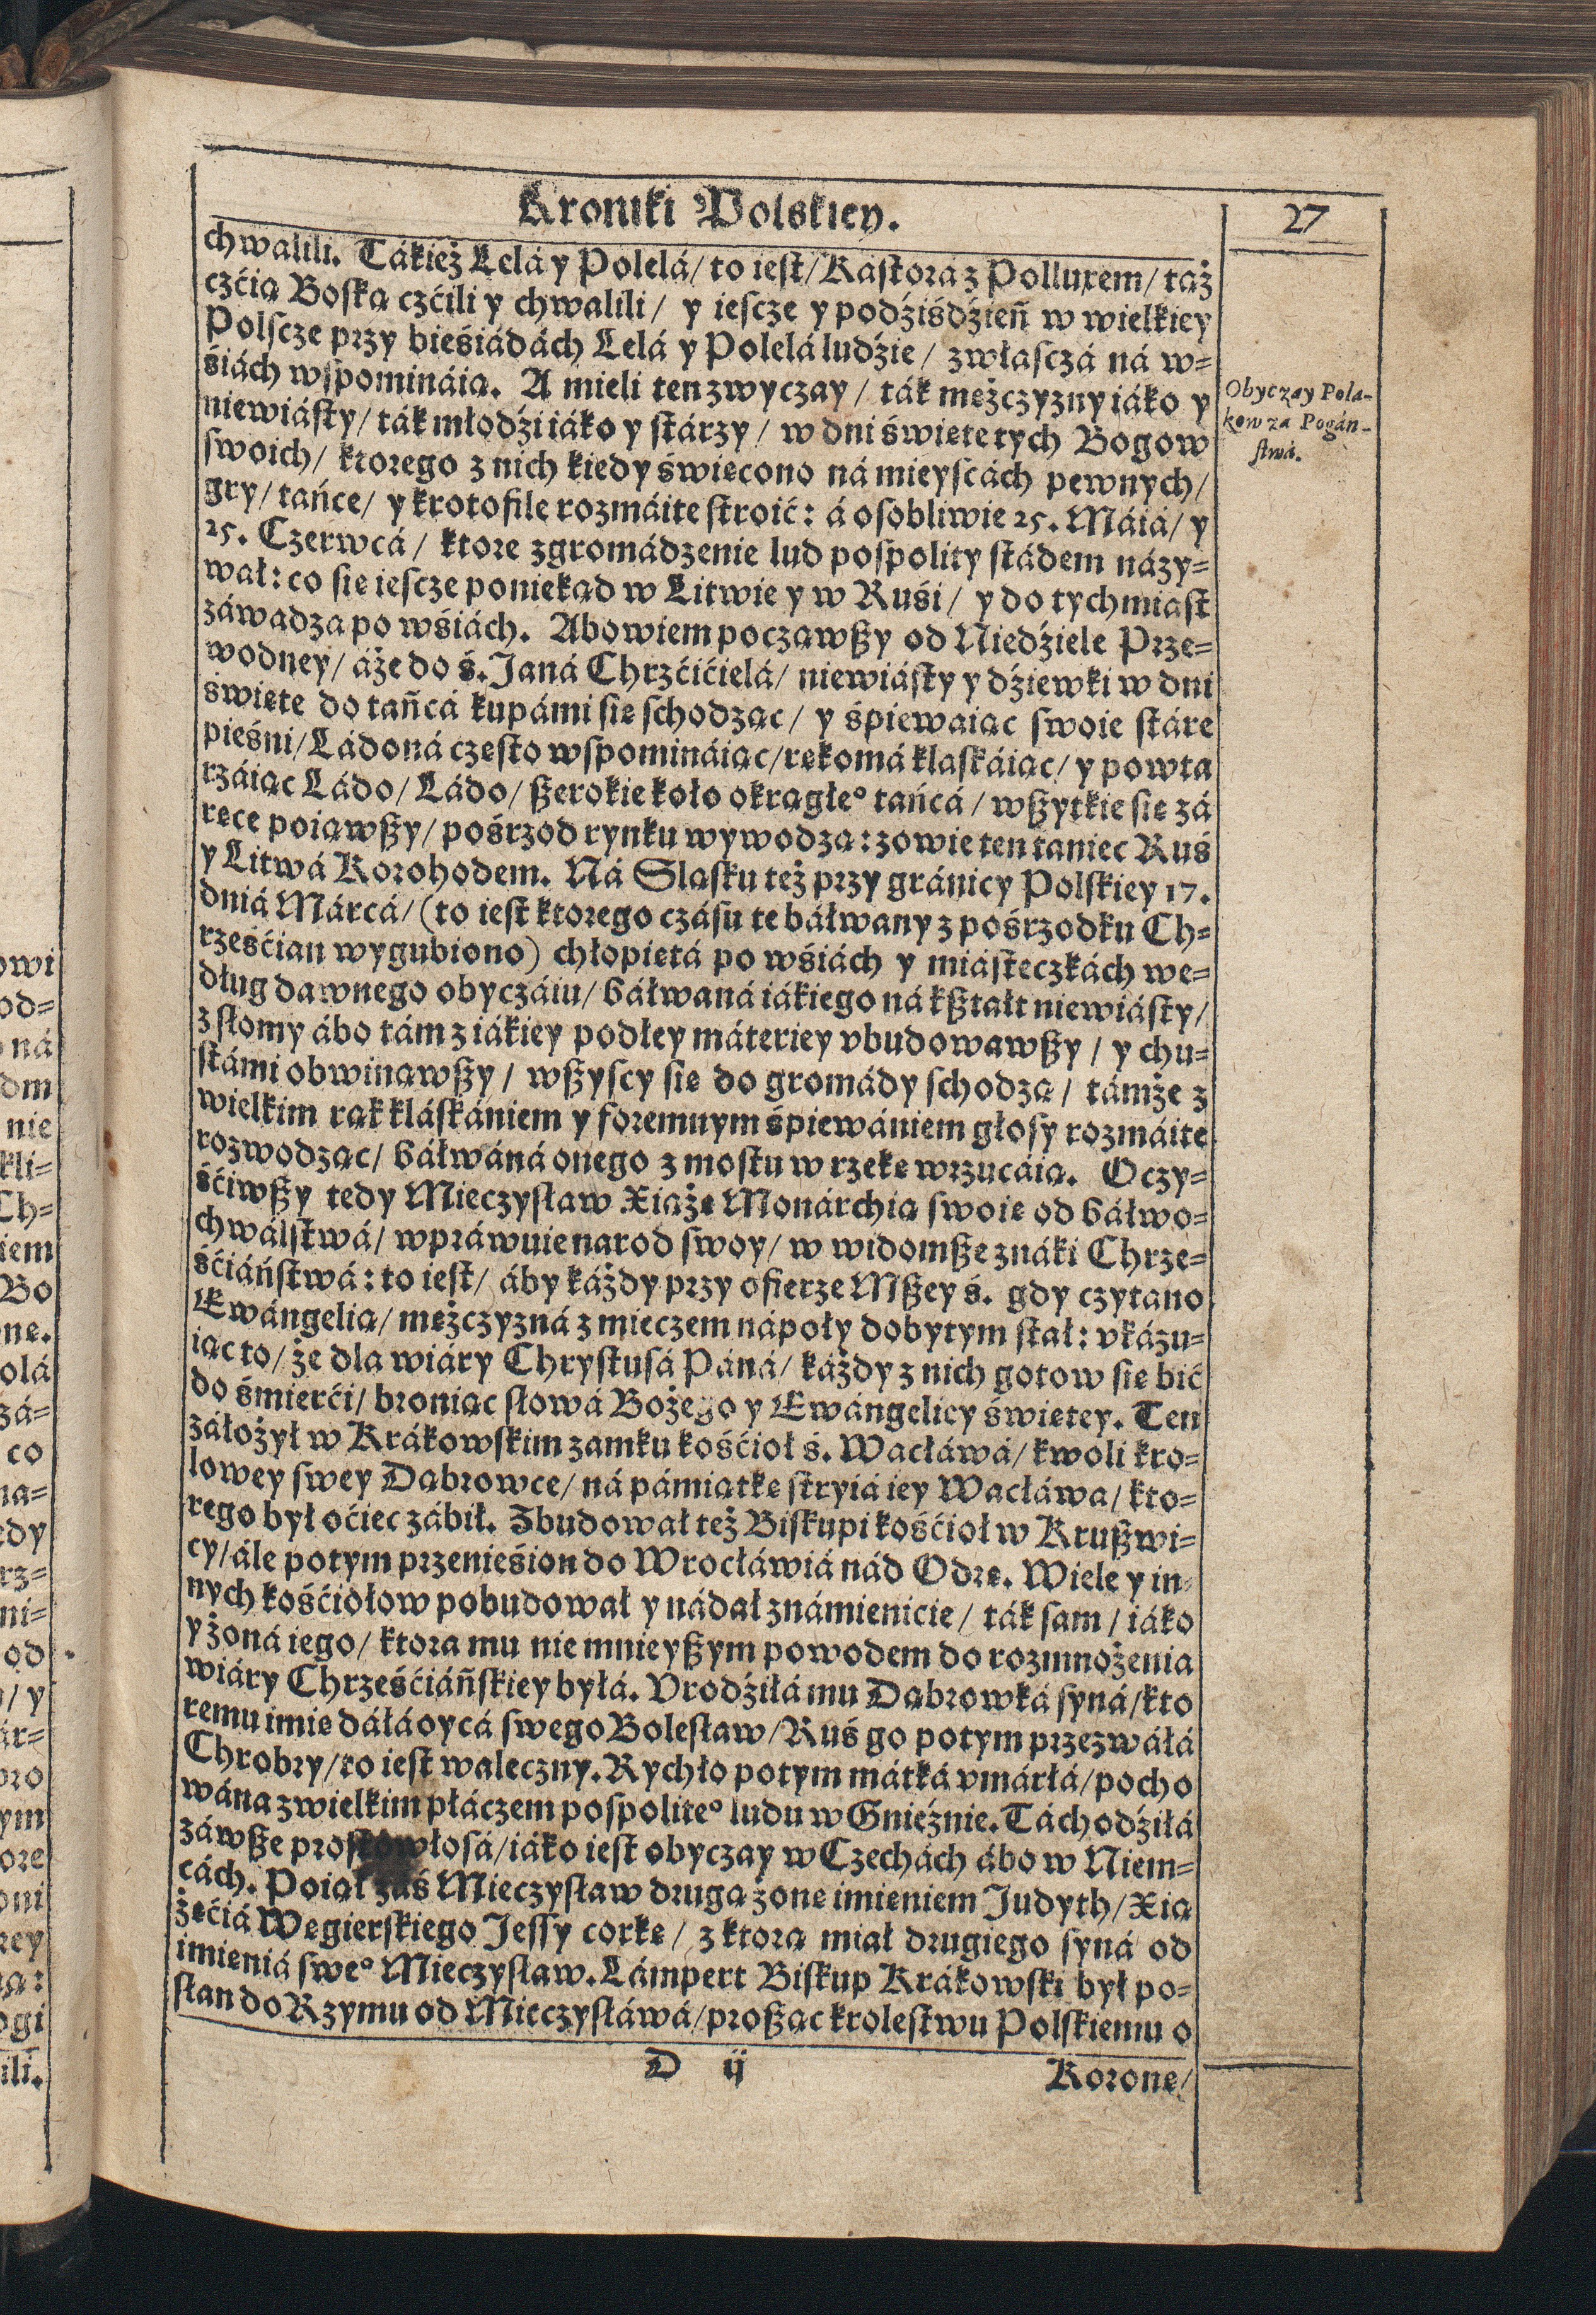 Kroniki Polskiey.
27
chwalili. Tákież Lelá y Polelá/ to iest/ Kastora z Polluxem/ taż
czćią Boską czćili y chwalili/ y iescze y podźiśdźień w wielkiey
Polscze przy bieśiádách Lelá y Polelá ludźie/ zwłasczá ná w=
śiách wspomináią. A mieli ten zwyczay/ ták mężczyzny iáko y
niewiásty/ ták młodźi iáko y stárzy/ w dni święte tych Bogow
swoich/ ktorego z nich kiedy święcono ná mieyscách pewnych/
gry/ tańce/ y krotofile rozmáite stroić: á osobliwie 25. Máiá/ y
25. Czerwcá/ ktore zgromádzenie lud pospolity stádem názy=
wał: co się iescze poniekąd w Litwie y w Ruśi/ y do tychmiast
záwadza po wśiách. Abowiem począwszy od Niedźiele Prze=
wodney/ áże do ś. Janá Chrzćićielá/ niewiásty y dźiewki w dni
święte do tańcá kupámi się schodząc/ y śpiewaiąc swoie stáre
pieśni/ Ládoná często wspomináiąc/ rękomá klaskáiąc/ y powta
rzáiąc Ládo/ Ládo/ szerokie koło okrągłe° tańcá/ wszytkie się zá
ręce poiąwszy/ pośrzod rynku wywodzą: zowie ten taniec Ruś
y Litwá Korohodem. Ná Sląsku też przy gránicy Polskiey 17.
dniá Márcá/ (to iest ktorego czásu te báłwany z pośrzodku Ch=
rześćian wygubiono) chłopiętá po wśiách y miásteczkách we=
dług dawnego obyczáiu/ báłwaná iákiego ná kształt niewiásty/
z słomy ábo tám z iákiey podłey máteriey vbudowawszy/ y chu=
stámi obwinąwszy/ wszyscy się do gromády schodzą/ támże z
wielkim rąk kláskániem y foremnym śpiewániem głosy rozmáite
rozwodząc/ báłwáná onego z mostu w rzekę wrzucáią. Oczy=
śćiwszy tedy Mieczysław Xiążę Monárchią swoię od báłwo=
chwálstwá/ wpráwuie narod swoy/ w widomsze znáki Chrze=
śćiáństwá: to iest/ áby káżdy przy ofierze Mszey ś. gdy czytano
Ewángelią/ mężczyzná z mieczem nápoły dobytym stał: vkázu=
iąc to/ że dla wiáry Chrystusá Páná/ káżdy z nich gotow się bić
do śmierći/ broniąc słowá Bożego y Ewángelicy świętey. Ten
záłożył w Krákowskim zamku kośćioł ś. Wacłáwá/ kwoli kro=
lowey swey Dąbrowce/ ná pámiątkę stryiá iey Wacłáwa/ kto=
rego był oćiec zábił. Zbudował też Biskupi kośćioł w Kruszwi=
cy/ ále potym przenieśion do Wrocłáwiá nád Odrę. Wiele y in=
nych kośćiołow pobudował y nádał známienicie/ ták sam/ iáko
y żoná iego/ ktora mu nie mnieyszym powodem do rozmnożenia
wiáry Chrześćiáńskiey byłá. Vrodźiłá mu Dąbrowká syná/ kto
remu imię dáłá oycá swego Bolesław/ Ruś go potym przezwáłá
Chrobry/ to iest waleczny. Rychło potym mátká vmárłá/ pocho
wána z wielkim płáczem pospolite° ludu w Gnieźnie. Tá chodźiłá
záwsze prosto włosá/ iáko iest obyczay w Czechách ábo w Niem=
cách. Poiął záś Mieczysław drugą żonę imieniem Judyth/ Xią
żęćiá Węgierskiego Jessy corkę/ z ktorą miał drugiego syná od
imieniá swe° Mieczysław. Lámpert Biskup Krákowski był po=
słan do Rzymu od Mieczysłáwá/ prosząc krolestwu Polskiemu o
D ij
Koronę/
Obyczay Pola-
kow za Pogán-
stwá.
owi
od=
ná
dm
nie
kli=
Ch=
iem
Bo
ne.
olá
zá=
co
na=
edy
rz=
ni=
od
/ y
ár=
oro
ym
ore
oni
rey
ogi
ili.